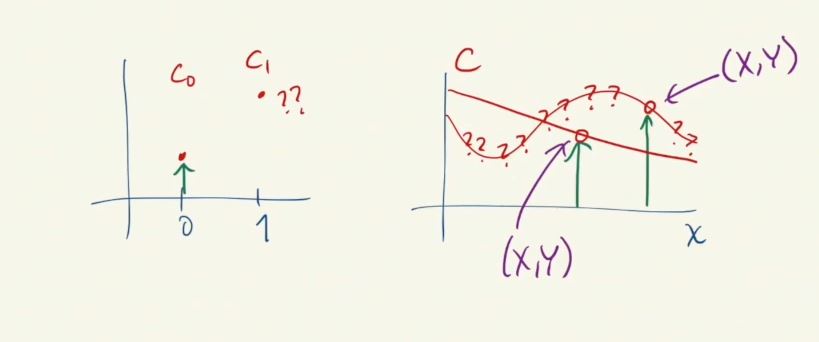 C₀
C₁
??
0
1
C
(X,Y)
??
??
??
??
??
(X,Y)
x